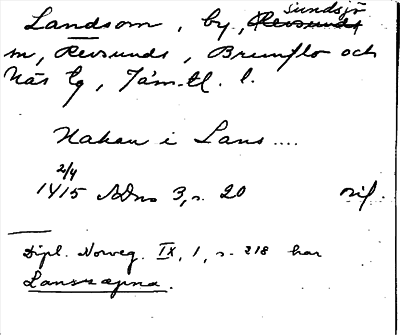 Landsom, by, Sundsjö
sn, Revsunds, Brunflo och
Näs tg, Jämtl. l.
Hakan i Lans....
2/4
1415 ADns 3, s. 20 orig.
Dipl. Norveg. IX, 1, s. 218 har
Lansæpna.